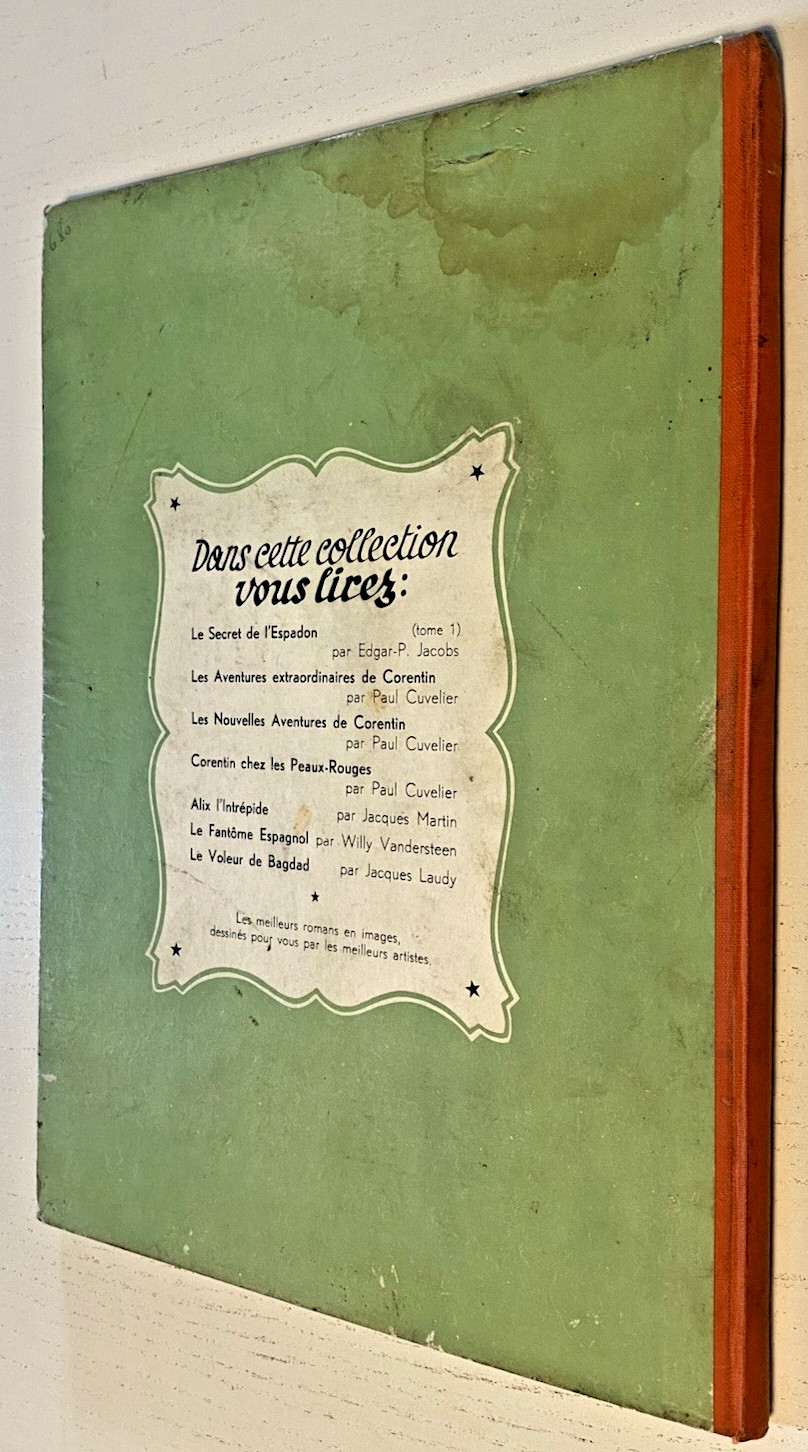 680
Dans cette collection
vous lirez:
Le Secret de l'Espadon (tome 1)
par Edgar-P. Jacobs
Les Aventures extraordinaires de Corentin
par Paul Cuvelier
Les Nouvelles Aventures de Corentin
par Paul Cuvelier
Corentin chez les Peaux-Rouges
par Paul Cuvelier
Alix l'Intrépide par Jacques Martin
Le Fantôme Espagnol par Willy Vandersteen
Le Voleur de Bagdad par Jacques Laudy
Les meilleurs romans en images,
dessinés pour vous par les meilleurs artistes.